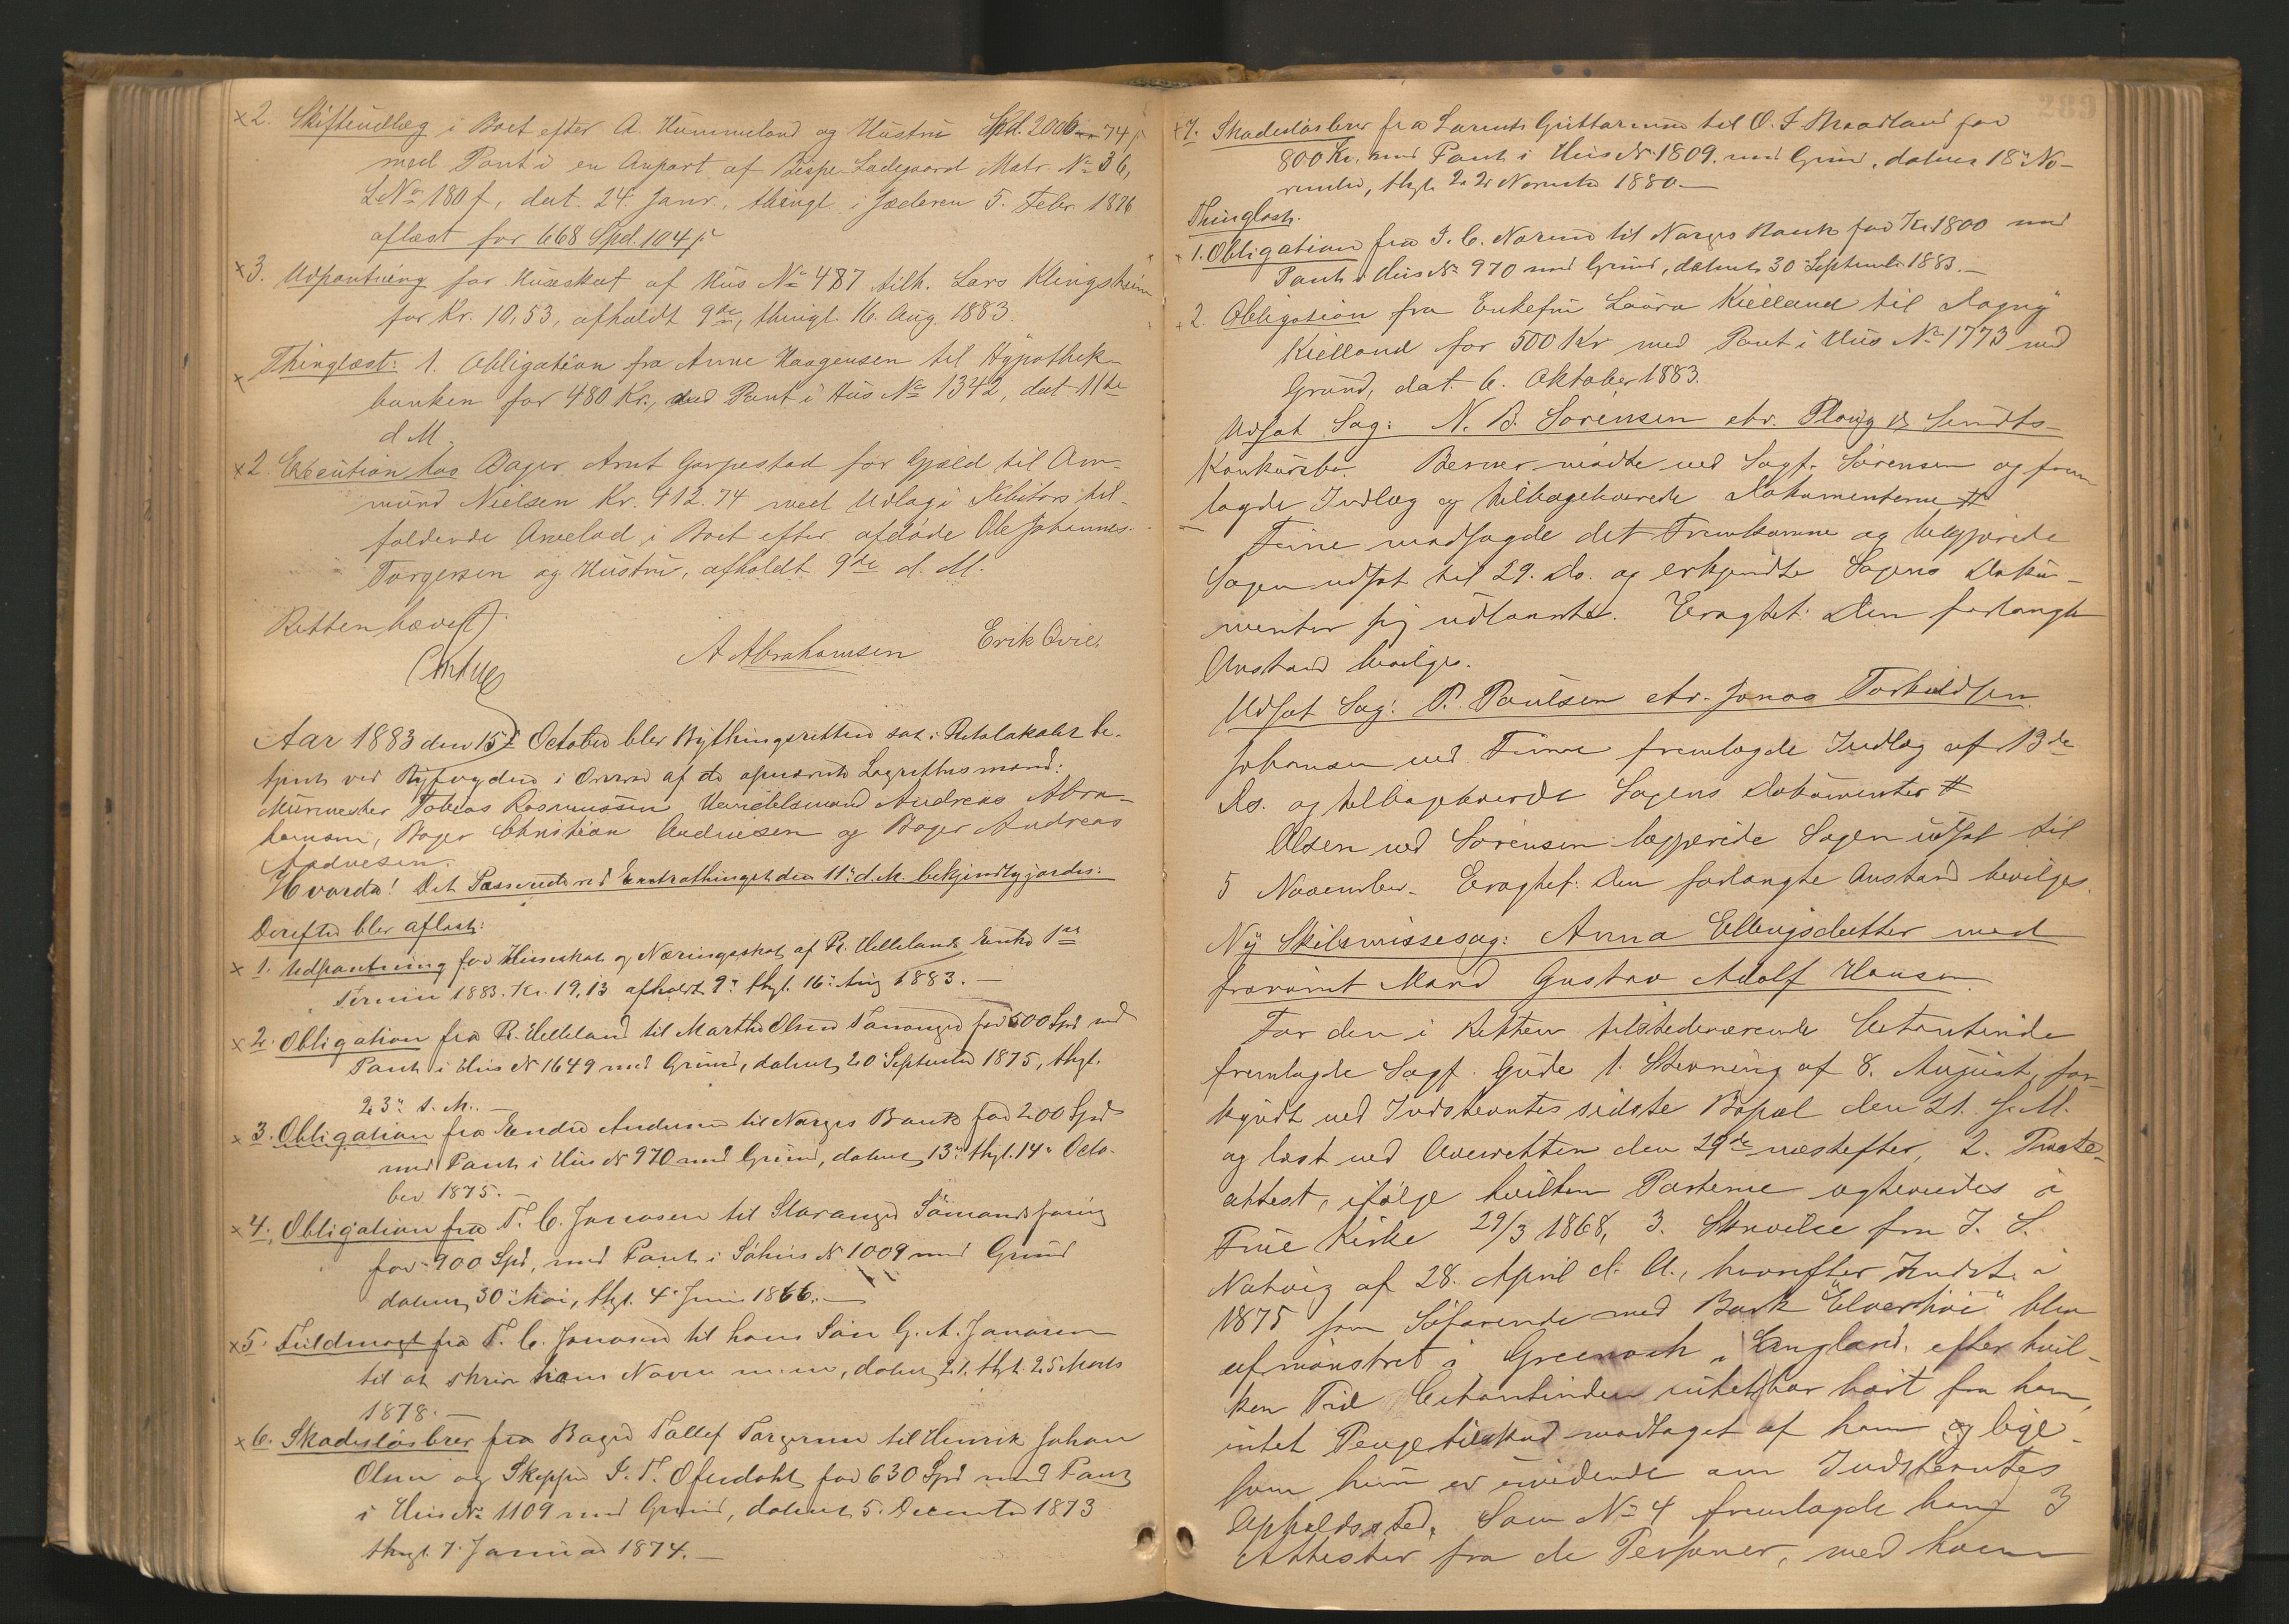 x 2. Skifteudlæg i Boet efter A. Hummeland og Hustru Spd. 2006 - 74 β
med Pant i en Anpart af Bispe-Ladegaard Matr. No 36,
L.No 180 f, dat. 24 Janr., thingl. i Jæderen 5. Febr. 1876
aflæst for 668 Spd. 104 β
x 3. Udpantning for Huseskat af Hus No 487 tilh. Lars Klingsheim
for Kr. 10,53, afholdt 9de, thingl. 16. Aug. 1883.
x Thinglæst: 1. Obligation fra Anne Haagensen til Hypothek-
banken for 480 Kr., med Pant i Hus No 1342, dat 11te
d. M.
x 2 Execution hos Bager Arnt Garpestad for Gjæld til Am-
mund Nielsen Kr. 412.74 med Udlæg i Debitors til-
faldende Arvelod i Boet efter afdøde Ole Johannes
Torgersen og Hustru, afholdt 9de d. M.
Retten hævet.
A Abrahamsen Erik Qvie.
Aar 1883 den 15de October blev Bythingsretten sat i Retslokalet be-
tjent ved Byfogden i Overvær af de opnævnte Lagrettesmænd:
Murmester Tobias Rasmussen, Handelsmand Andreas Abra-
hamsen, Bager Christian Andreesen og Bager Andreas
Andresen.
Hvorda! Det Passerede ved Extrathinget den 11te d. M. bekjendtgjordes:
Derefter blev aflæst:
x 1. Udpantning for Huseskat og Næringsskat af R. Hellelands Enke 1ste
Termin 1883. Kr. 19,13 afholdt 9de thgl. 16de Aug 1883. —
x 2. Obligation fra R. Helleland til Marthe Olsen Tananger for 500 Spd med
Pant i Hus No 1649 med Grund, dateret 20 September 1875, thgl.
23de s. M. —
x 3. Obligation fra Endre Andersen til Norges Bank for 200 Spd
med Pant i Hus No 970 med Grund, dateret 13de thgl. 14de Octo-
ber 1875. —
x 4. Obligation fra T. C. Jonasen til Stavanger Sömandsforing
for 900 Spd, med Pant i Söhus No 1009 med Grund
dateret 30 Mai, thgl. 4de Juni 1866. —
x 5. Fuldmagt fra T. C. Jonasen til hans Sön G. A. Jonasen
til at skrive hans Navn m. m., dateret 21. thgl. 25 Marts
1878. —
x 6. Skadeslösbrev fra Bager Tallef Torgersen til Henrik Johan
Olsen og Skipper I. T. Ofstedahl for 630 Spd med Pant
i Hus No 1109 med Grund, dateret 5. December 1873
thgl. 7. Januar 1874. —
289
x 7. Skadeslösbrev fra Laurits Guttormsen til O. T. Straadland for
800 Kr. med Pant i Hus No 1809. med Grund, dateret 18de No-
vember, thgl. 22 November 1880. —
Thinglæst.
x 1. Obligation fra I. C. Norem til Norges Bank for Kr. 1800 med
Pant i Hus No 970 med Grund, dateret 30 September 1883. —
x 2. Obligation fra Enkefru Laura Kielland til Dagny
Kielland for 500 Kr med Pant i Hus No 1773 med
Grund, dat. 6. Oktober 1883.
Udsat Sag: N. B. Sörensen ctr. Plough & Sundts
Konkursbo. Berner mödte ved Sagf. Sörensen og frem
lagde Indlæg og tilbageleverede Dokumenterne #
Feine modsagde det Fremkomne og begjærede
Sagen udsat til 29. ds. og erkjendte Sagens Doku-
menter sig udlaante. Eragtet: Den forlangte
Anstand bevilges.
Udsat Sag: P. Paulsen ctr. Jonas Torkildsen
Johansen ved Feine fremlagde Indlæg af 13de
ds. og tilbageleverede Sagens Dokumenter #
Olsen ved Sörensen begjærede Sagen udsat til
5 November. Eragtet: Den forlangte Anstand bevilges.
Ny Skilsmissesag: Anna Ellingsdatter mod
frarömt Mand Gustav Adolf Hansen.
For den i Retten tilstedeværende Citantinde
fremlagde Sagf. Gude 1. Stevning af 8. August, for-
kyndt ved Indstevntes sidste Bopæl den 21. s. M.
og læst ved Overretten den 29de næstefter, 2. Præste-
attest, ifölge hvilken Parterne ægteviedes i
Frue Kirke 29/3 1868, 3. Skrivelse fra I. S.
Natvig af 28. April d. A., hvorefter Indst. i
1875 som Söfarende med Bark "Elverhöi" blev
afmönstret i Greenock i England, efter hvil-
ken Tid Citantinden intet har hört fra ham,
intet Pengetilskud modtaget af ham og lige-
som hun er uvidende om Indstevntes
Opholdssted. Som No 4 fremlagde han 3
Attester fra de Personer, med hvem